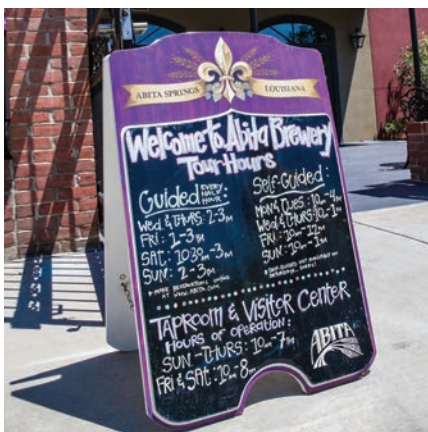 ABITA SPRINGS LOUISIANA
Welcome to Abita Brewery
Tour Hours
Guided EVERY HALF HOUR:
Wed & THURS: 2-3PM
FRI: 1-3PM
SAT: 1030AM-3PM
SUN: 2-3PM
* MAKE RESERVATIONS ONLINE
AT WWW.ABITA.COM
Self-Guided:
MON & TUES: 10AM-4PM
Wed & THURS: 10AM-1PM
FRI: 10AM-12PM
SUN: 10AM-1PM
TAPROOM & VISITOR CENTER
HOURS OF OPERATION:
SUN-THURS: 10AM-7PM
FRI & SAT: 10AM-8PM
ABITA